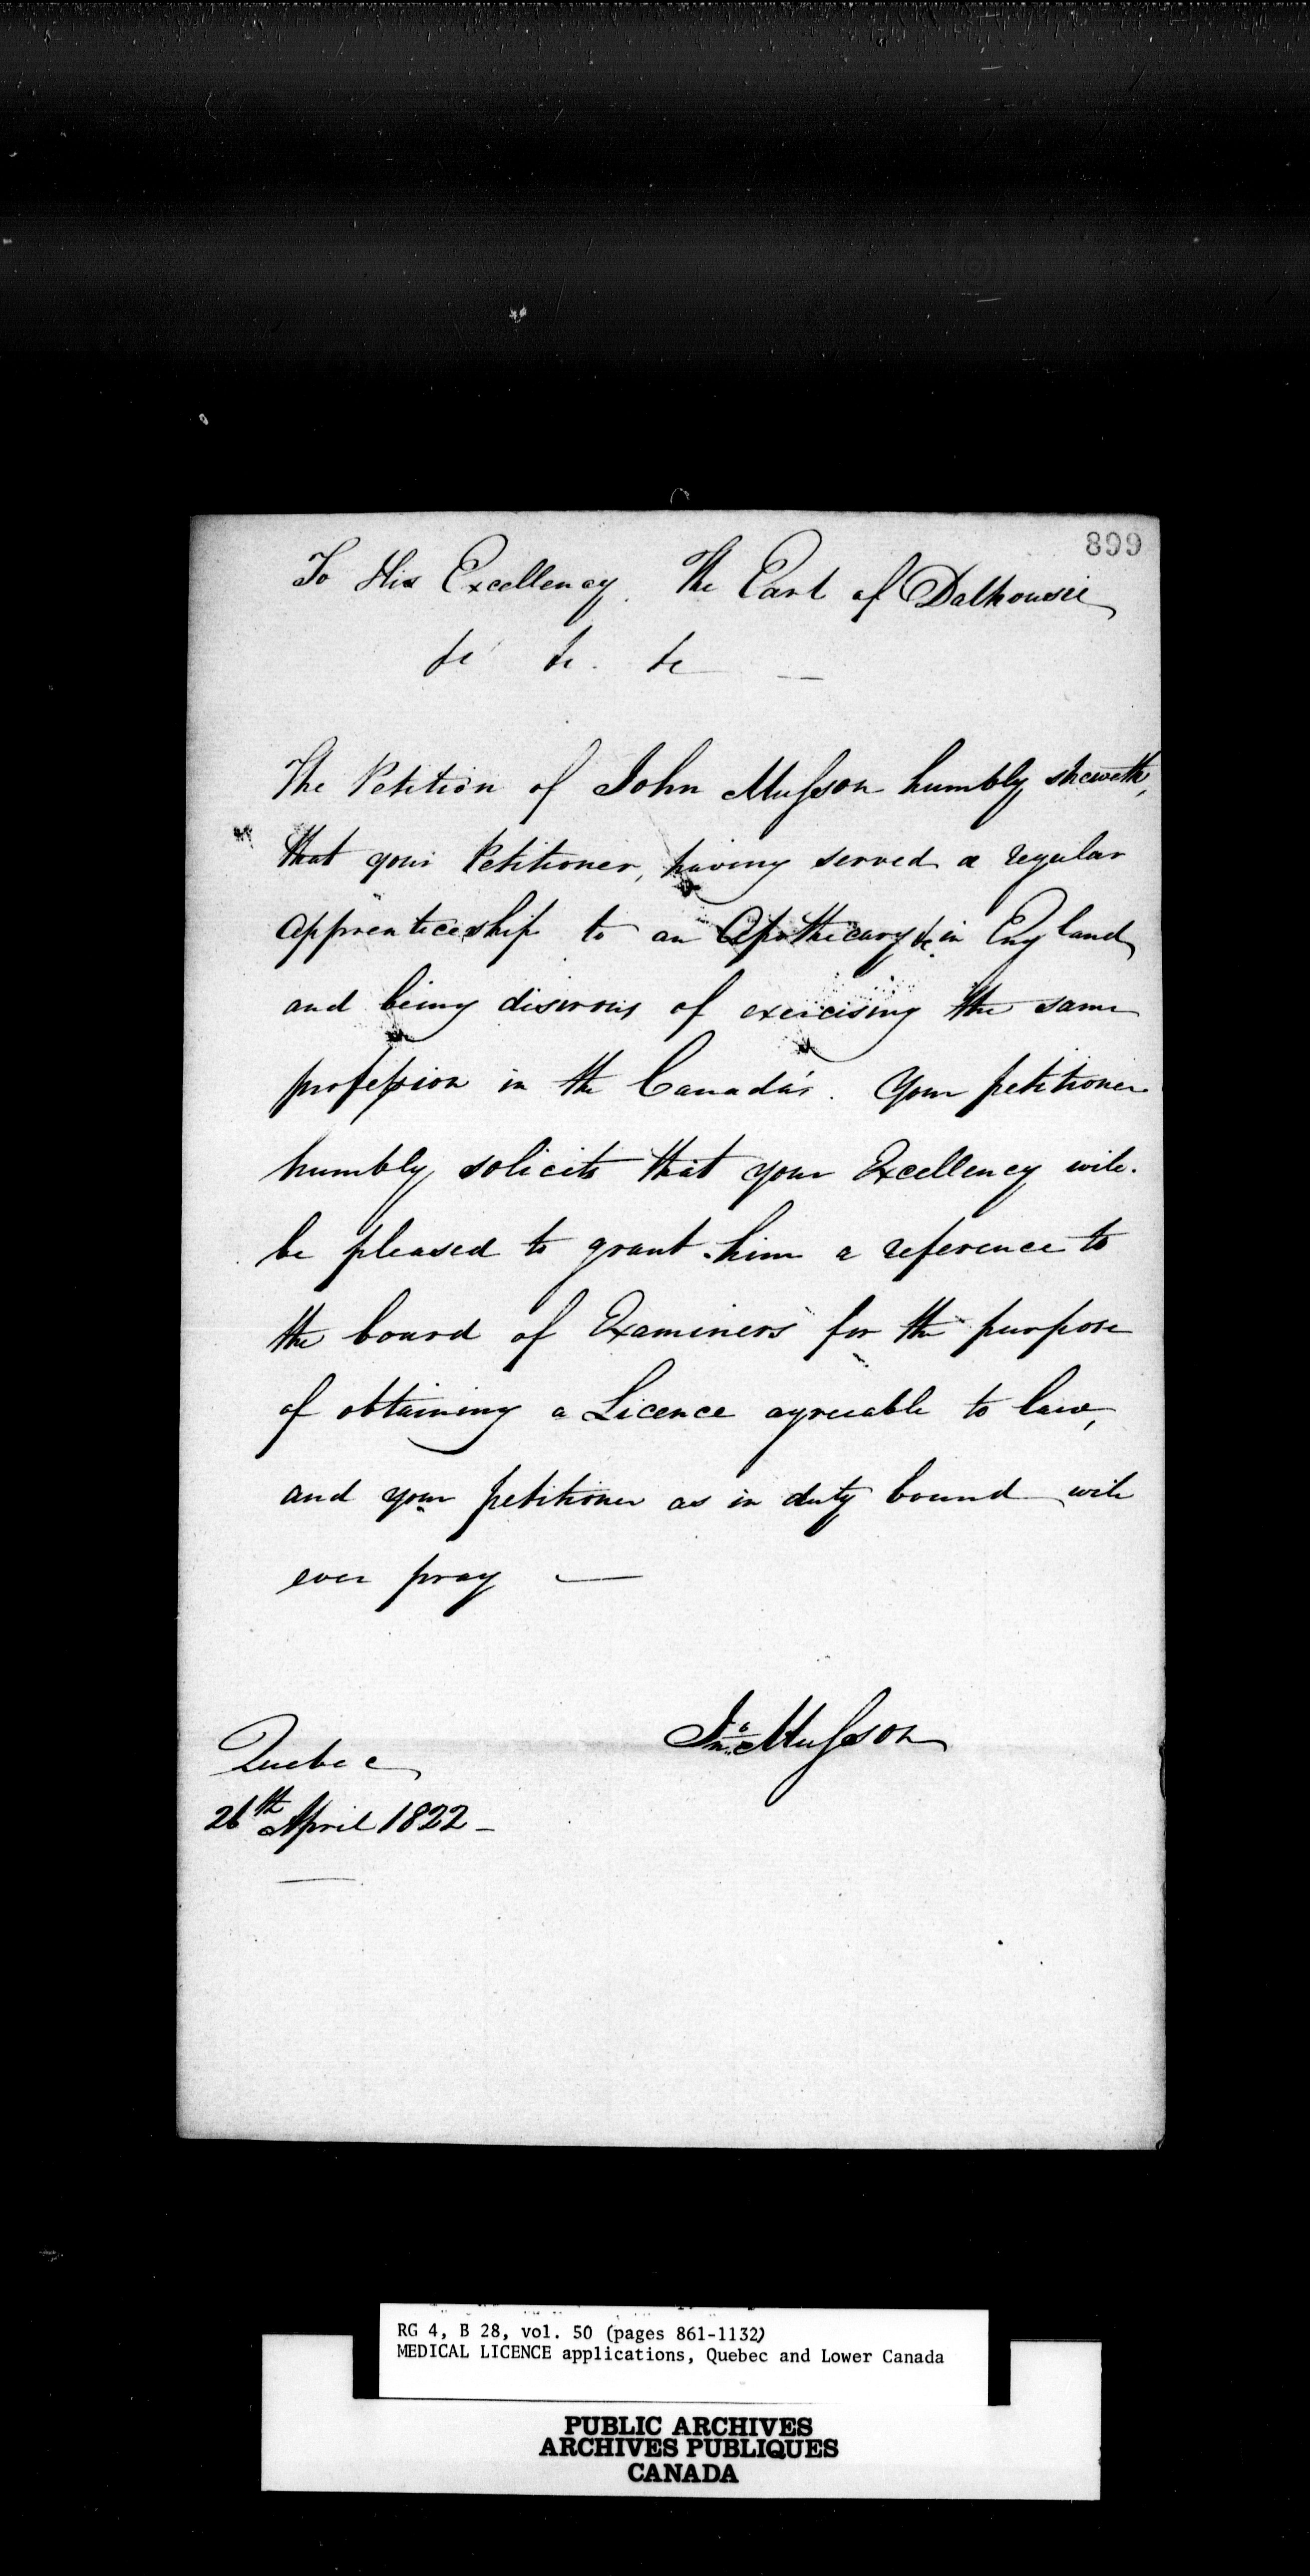 899
To His Excellency. The Earl of Dalhousie
&c &c. &c —
The Petition of John Musson humbly sheweth,
that your Petitioner, having served a regular
apprenticeship to an Apothecary &c in England
and being disirous of exercising the same
profession in the Canada's. Your petitioner
humbly solicits that your Excellency will
be pleased to grant him a reference to
the board of Examiners for the purpose
of obtaining a Licence agreeable to law,
and your petitioner as in duty bound will
ever pray —
Jno. Musson
Quebec
26th April 1822 —
RG 4, B 28, vol. 50 (pages 861-1132)
MEDICAL LICENCE applications, Quebec and Lower Canada
PUBLIC ARCHIVES
ARCHIVES PUBLIQUES
CANADA